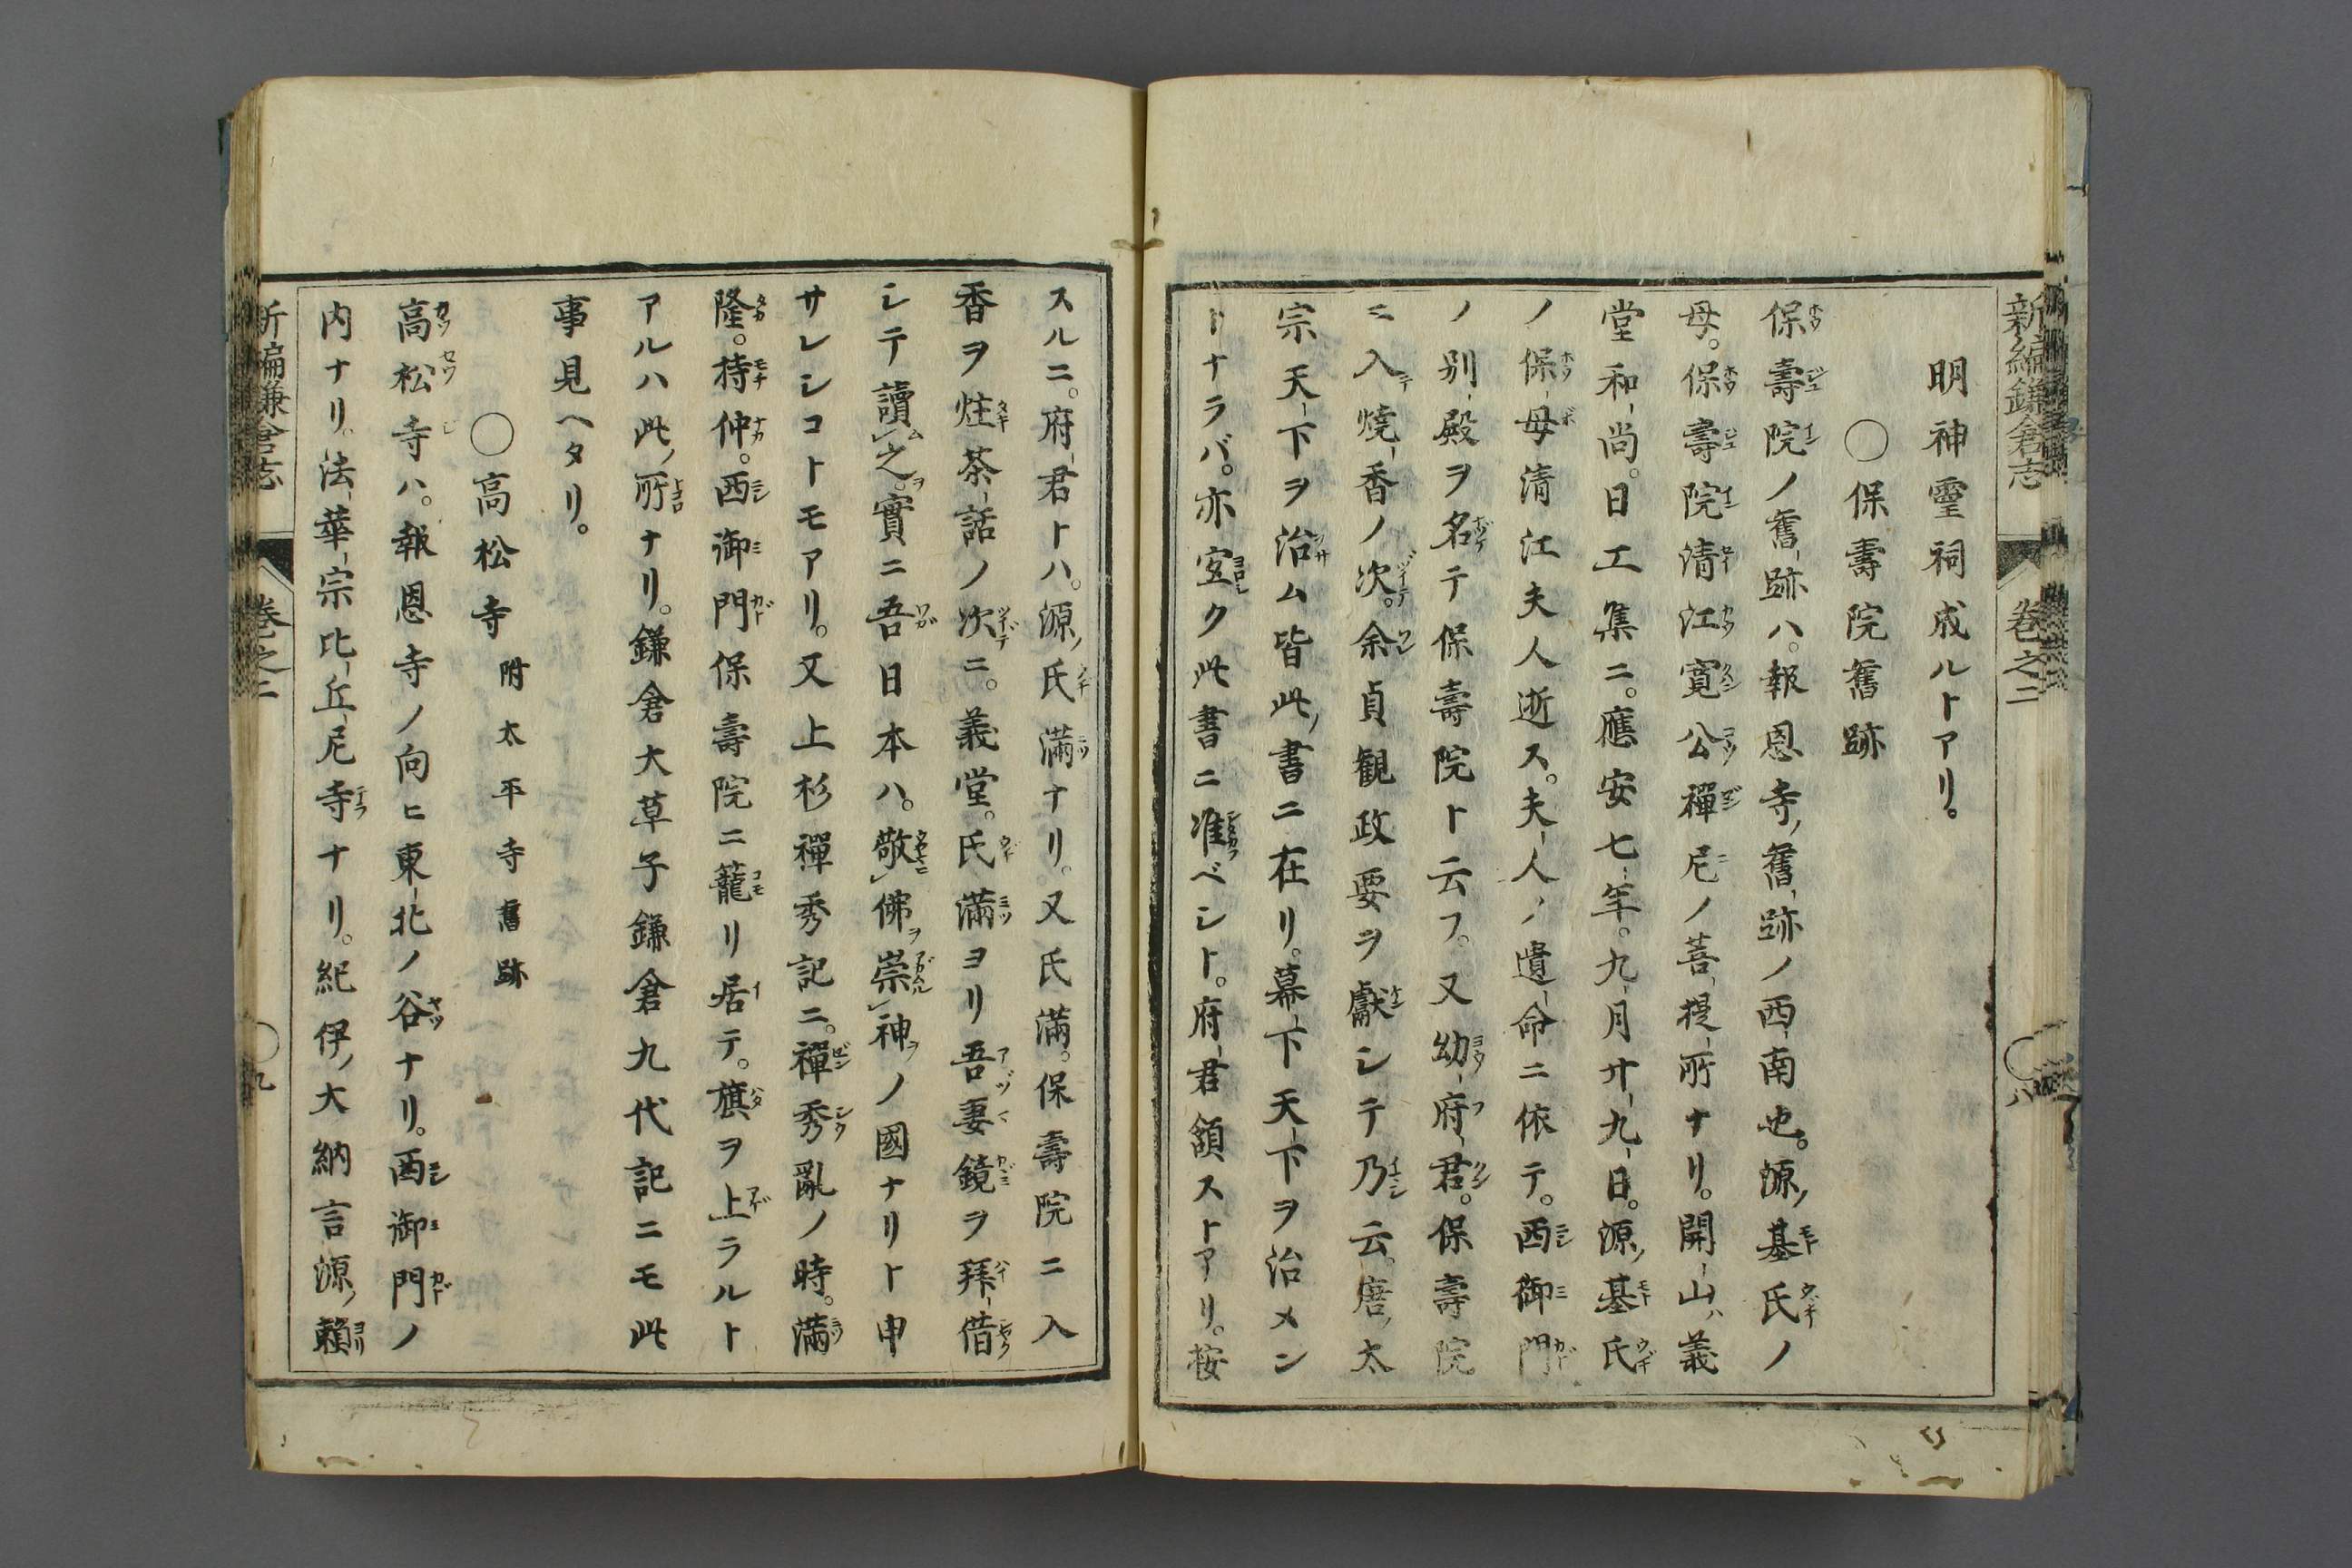 新編鎌倉志 卷之二 〇八
明神靈祠成ルトアリ。
〇保壽院舊跡
保壽院ノ舊跡ハ。報恩寺ノ舊跡ノ西南也。源ノ基氏ノ
母。保壽院清江寛公禪尼ノ菩提所ナリ。開山ハ義
堂和尚。日工集ニ。應安七年。九月廿九日。源ノ基氏
ノ保母清江夫人逝ス。夫人ノ遺命ニ依テ。西御門
ノ別殿ヲ名テ保壽院ト云フ。又幼府君。保壽院
ニ入テ燒香ノ次。余貞観政要ヲ獻シテ乃云。唐ノ太
宗天下ヲ治ム皆此ノ書ニ在リ。幕下天下ヲ治メン
トナラバ。亦宜ク此書ニ准ベシト。府君頷ストアリ。按
スルニ。府君トハ。源ノ氏滿ナリ。又氏滿。保壽院ニ入
香ヲ炷茶話ノ次ニ。義堂。氏滿ヨリ吾妻鏡ヲ拜借
シテ讀ム之ヲ。實ニ吾日本ハ。敬佛ヲ崇神ヲノ國ナリト申
サレシコトモアリ。又上杉禪秀記ニ。禪秀亂ノ時。滿
隆。持仲。西御門保壽院ニ籠リ居テ。旗ヲ上ラルト
アルハ此ノ所ナリ。鎌倉大草子鎌倉九代記ニモ此
事見ヘタリ。
〇高松寺 附太平寺舊跡
高松寺ハ。報恩寺ノ向ヒ東北ノ谷ナリ。西御門ノ
内ナリ。法華宗比丘尼寺ナリ。紀伊ノ大納言源ノ賴
新編鎌倉志 卷之二 〇九